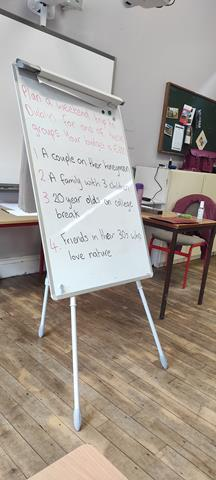 Plan a weekend trip to
Dublin for one of these
groups. Your budget is €500
1 A couple on their honeymoon
2 A family with 3 children
3 20 year olds on college
break
4. Friends in their 30s who
love nature